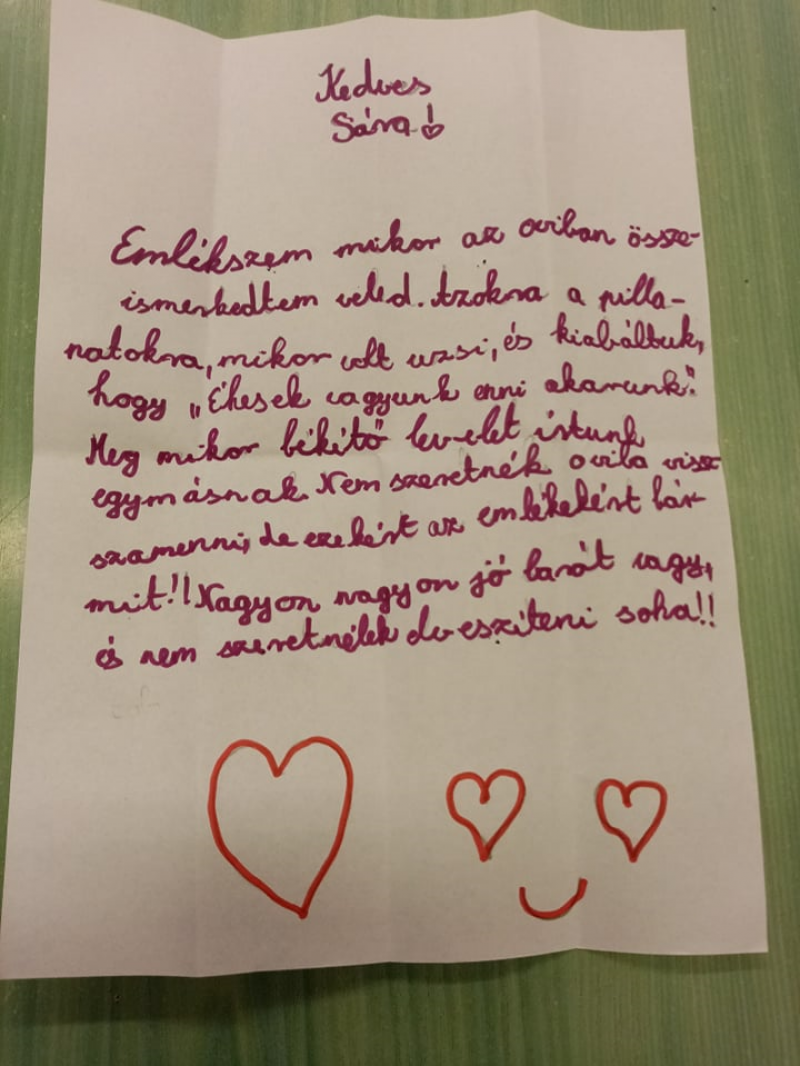 Kedves
Sára!
Emlékszem mikor az oviban össze-
ismerkedtem veled. Azokra a pilla-
natokra, mikor volt uzsi, és kiabáltuk,
hogy „Éhesek vagyunk enni akarunk."
Meg mikor békítő levelet írtunk
egymásnak. Nem szeretnék oviba vissz
szamenni, de ezekért az emlékekért bár-
mit!! Nagyon nagyon jó barát vagy,
és nem szeretnélek elveszíteni soha!!